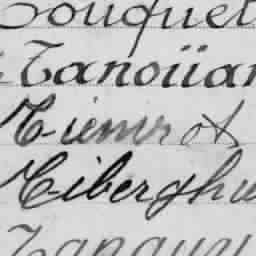 Touquet
Tanoüar
Tiemrot
Tiberghie
Tanguy